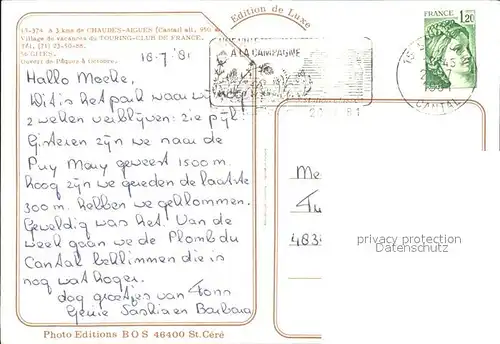 Edition de Luxe
15-374 A 3 kms de CHAUDES-AIGUES (Cantal) alt. 950 m
Village de vacances du TOURING-CLUB DE FRANCE.
Tél. (71) 23-50-88.
GITES.
Ouvert de Pâques à Octobre.
18-7-'81
A LA CAMPAGNE
FRANCE
1,20
15 C
CANTAL
Hallo Moeke,
Dit is het park waar wij
2 weken verblijven: zie pijl!
Gisteren zijn we naar de
Puy Mary geweest 1500 m.
hoog zijn we gereden de laatste
300 m. hebben we geklommen.
Geweldig was het. Van de
week gaan we de Plomb du
Cantal beklimmen die is
nog wat hoger.
dag groetjes van Tonn
Genie Saskia en Barbara
Me
Tu
4834
privacy protection
Datenschutz
Photo Editions BOS 46400 St. Céré